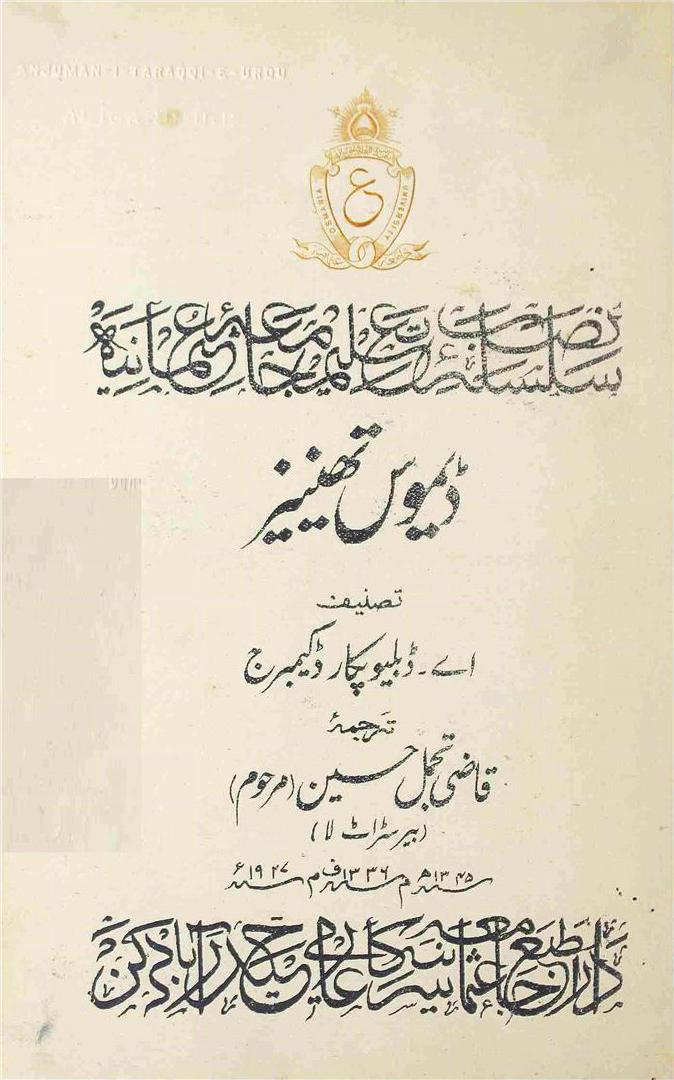 ANJUMAN-I-TARAQQI-E-URDU
OSMANIA UNIVERSITY
ع
سلسلۂ نصاب تعلیم جامعۂ عثمانیہ
ڈیموس تھینیز
تصنیف
اے۔ ڈبلیو پکارڈ کیمبرج
ترجمۂ
قاضی تجمل حسین (مرحوم)
(بیرسٹر اٹ لا)
سنہ ۱۳۴۵ھ م سنہ ۱۳۳۶ ف م سنہ ۱۹۲۷ء
دارالطبع جامعہ عثمانیہ سرکار عالی حیدرآباد دکن